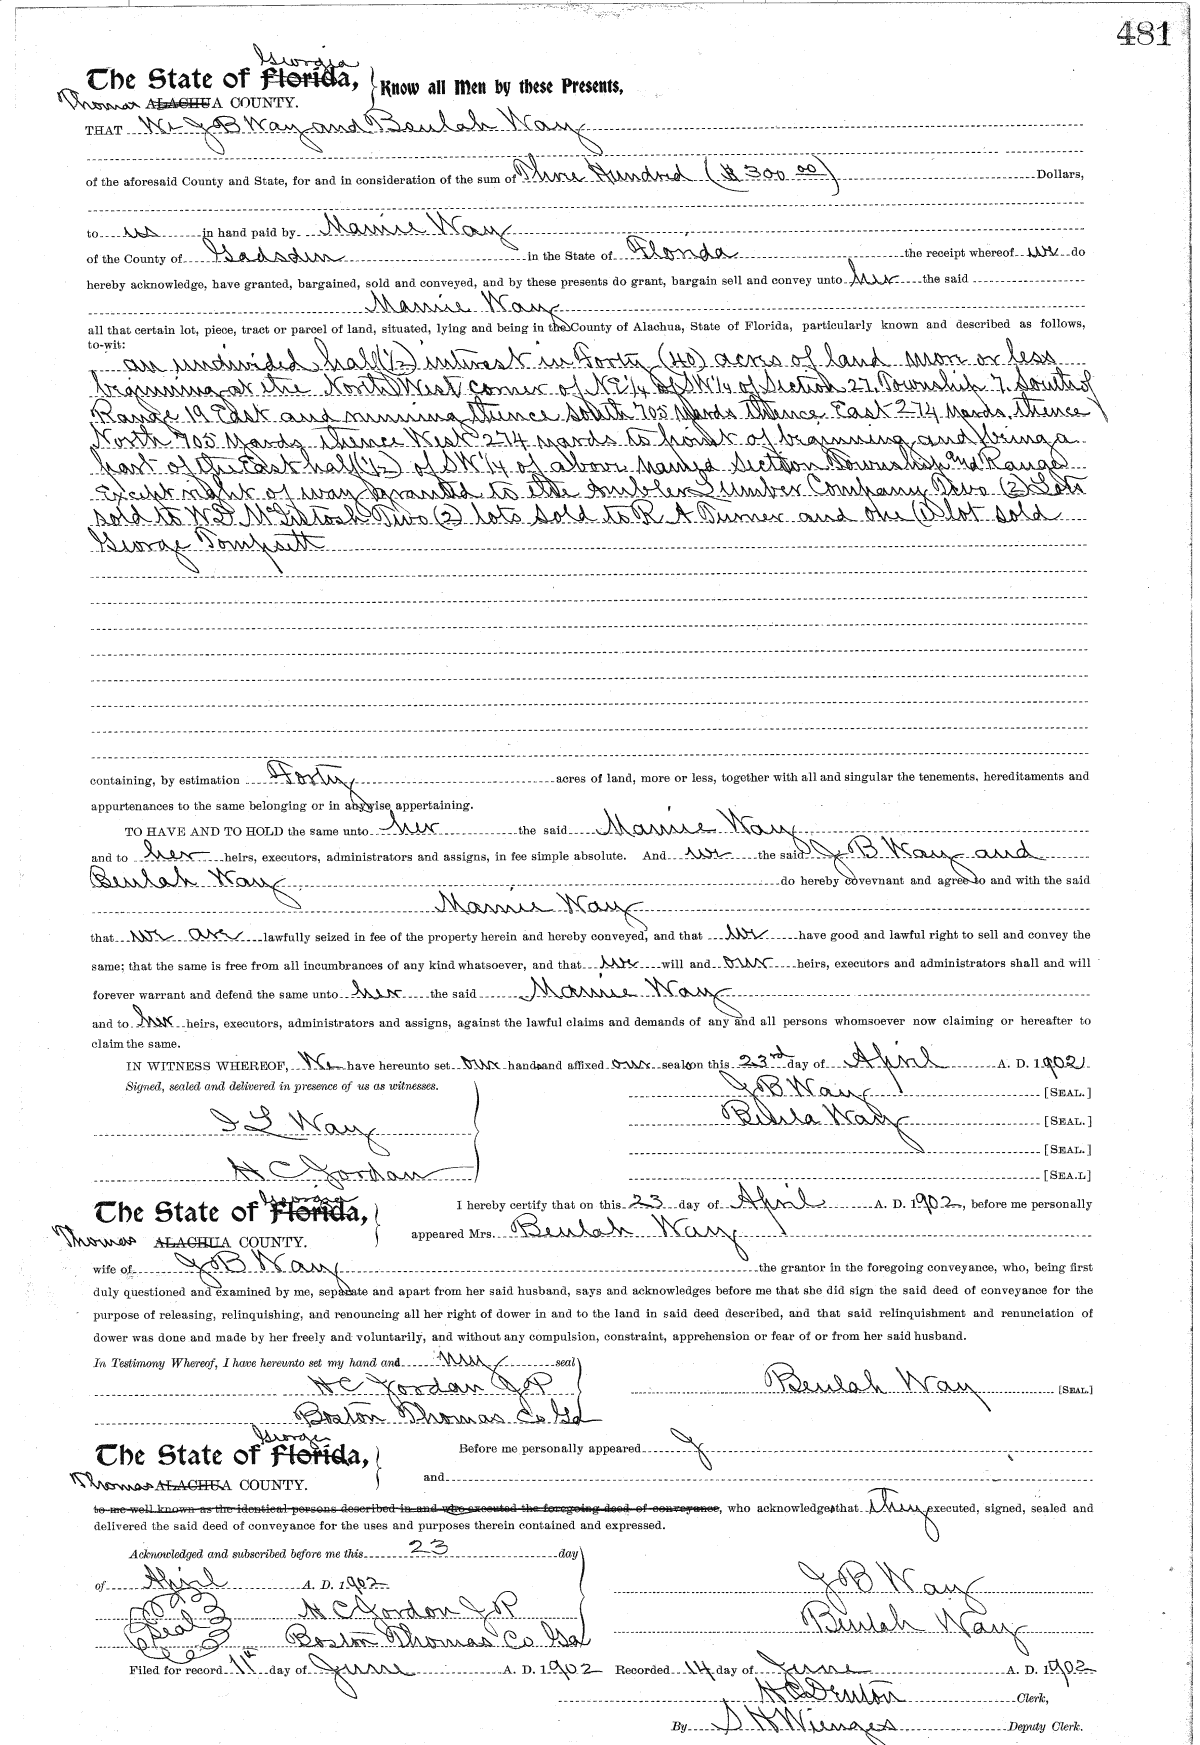 481
Georgia
The State of Florida, Know all Men by these Presents,
Thomas ALACHUA COUNTY.
THAT We J B Way and Beulah Way
of the aforesaid County and State, for and in consideration of the sum of Three Hundred ($300 00) Dollars,
to us in hand paid by Mamie Way
of the County of Gadsden in the State of Florida the receipt whereof we do
hereby acknowledge, have granted, bargained, sold and conveyed, and by these presents do grant, bargain sell and convey unto her the said
Mamie Way
all that certain lot, piece, tract or parcel of land, situated, lying and being in the County of Alachua, State of Florida, particularly known and described as follows,
to-wit:
an undivided half (1/2) interest in Forty (40) acres of land more or less
beginning at the North West corner of N E 1/4 of SW 1/4 of Section 27 Township 7 South of
Range 19 East and running thence south 705 yards thence East 274 yards thence
North 705 yards thence West 274 yards to point of beginning and being a
part of the East half (1/2) of SW 1/4 of above named Section Township and Range
Except right of way granted to the Ambler Lumber Company Two (2) Lots
sold to McIntosh Two (2) lots sold to R A Turner and one (1) lot sold
George Tompsett
containing, by estimation Forty acres of land, more or less, together with all and singular the tenements, hereditaments and
appurtenances to the same belonging or in anywise appertaining.
TO HAVE AND TO HOLD the same unto her the said Mamie Way
and to her heirs, executors, administrators and assigns, in fee simple absolute. And we the said J B Way and
Beulah Way do hereby covevnant and agree to and with the said
Mamie Way
that we are lawfully seized in fee of the property herein and hereby conveyed, and that we have good and lawful right to sell and convey the
same; that the same is free from all incumbrances of any kind whatsoever, and that we will and our heirs, executors and administrators shall and will
forever warrant and defend the same unto her the said Mamie Way
and to her heirs, executors, administrators and assigns, against the lawful claims and demands of any and all persons whomsoever now claiming or hereafter to
claim the same.
IN WITNESS WHEREOF, We have hereunto set our hands and affixed our seals on this 23rd day of April A. D. 1902
Signed, sealed and delivered in presence of us as witnesses.
J B Way [SEAL.]
Beula Way [SEAL.]
I L Way
[SEAL.]
H C Jordan [SEAL]
Georgia
The State of Florida, I hereby certify that on this 23 day of April A. D. 1902, before me personally
Thomas ALACHUA COUNTY. appeared Mrs. Beulah Way
wife of J B Way the grantor in the foregoing conveyance, who, being first
duly questioned and examined by me, separate and apart from her said husband, says and acknowledges before me that she did sign the said deed of conveyance for the
purpose of releasing, relinquishing, and renouncing all her right of dower in and to the land in said deed described, and that said relinquishment and renunciation of
dower was done and made by her freely and voluntarily, and without any compulsion, constraint, apprehension or fear of or from her said husband.
In Testimony Whereof, I have hereunto set my hand and my seal
H C Jordan J P Beulah Way [SEAL.]
Boston Thomas Co Ga
Georgia
The State of Florida, Before me personally appeared J
Thomas ALACHUA COUNTY. and
to me well known as the identical persons described in and who executed the foregoing deed of conveyance, who acknowledges that They executed, signed, sealed and
delivered the said deed of conveyance for the uses and purposes therein contained and expressed.
Acknowledged and subscribed before me this 23 day
of April A. D. 1902 J B Way
Seal H C Jordon J P Beulah Way
Boston Thomas Co Ga
Filed for record 11th day of June A. D. 1902 Recorded 14 day of June A. D. 1902
H C Denton Clerk,
By S H Wienges Deputy Clerk.